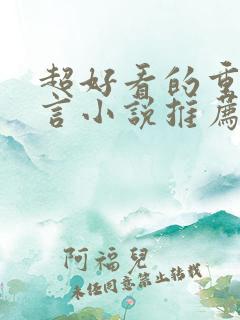 超好看的重
言小說推薦
阿福兒
未經同意禁止轉載